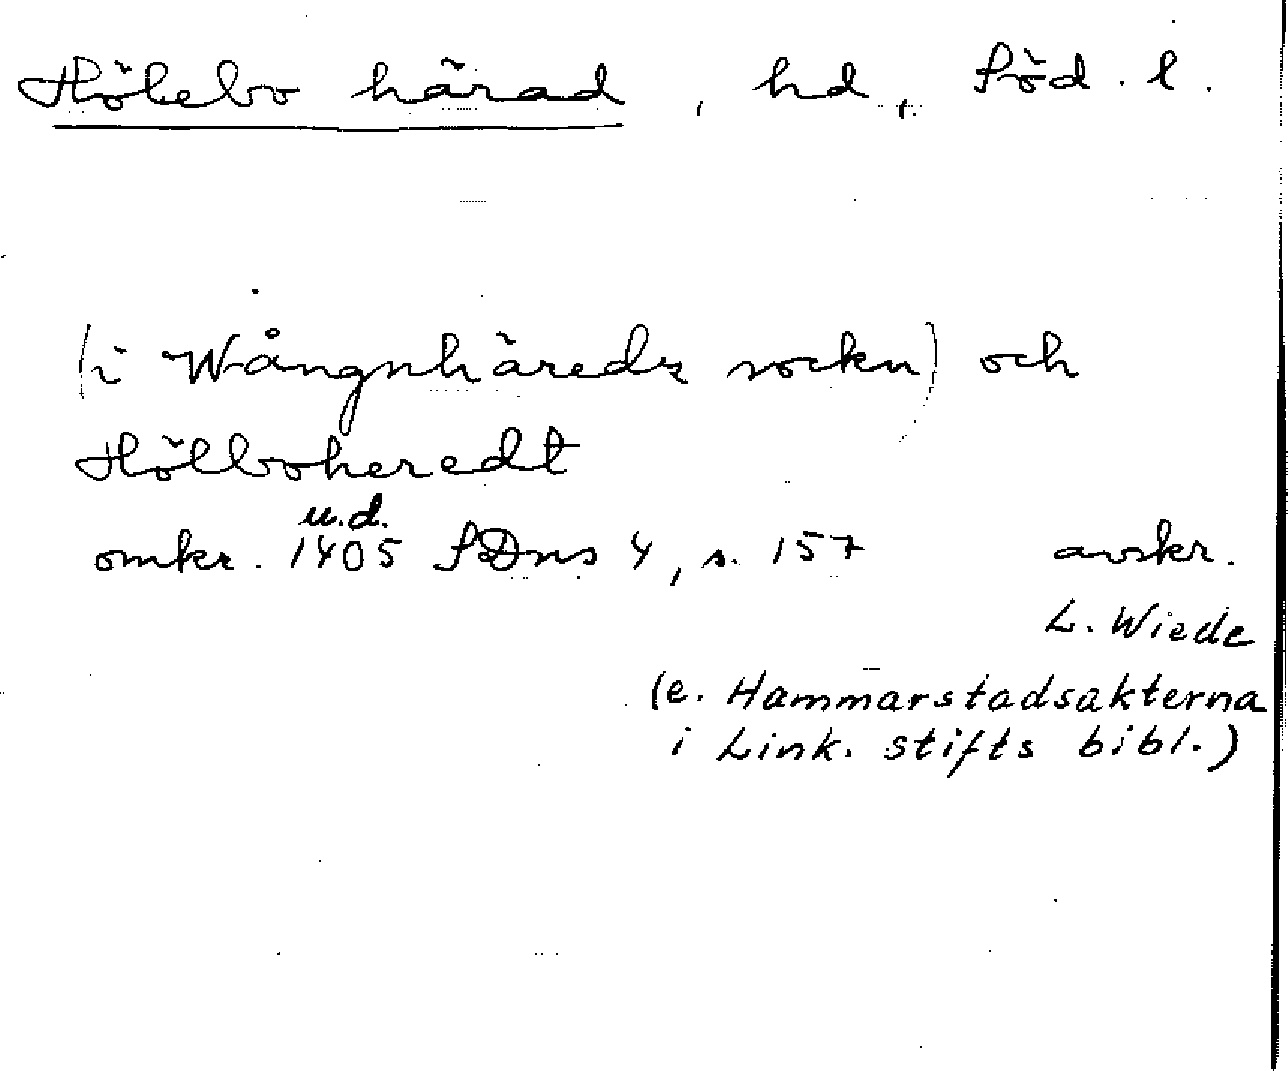 Hölebo härad, hd, Söd. l.
(i Wångnhäredz sockn) och
Hölboheredt
u.d.
omkr. 1405 SDns 4, s. 157 avskr.
L. Wiede
(e. Hammarstadsakterna
i Link. stifts bibl.)